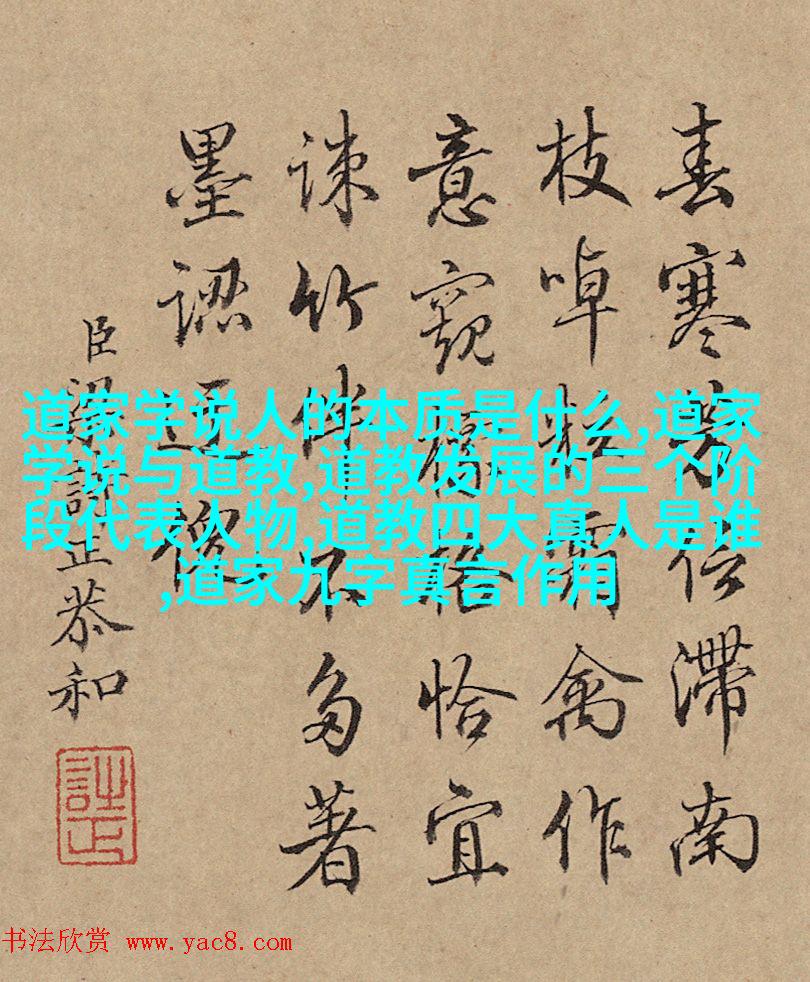 道家学说人的本质是什么,道家
学说与道教,道教发展的三个阶
段代表人物,道教四大真人是谁
,道家九字真言作用
春寒信滯南
枝啅霜禽作
意窺格恰宜
竹伴不多著
墨認
臣梁詩正恭和
詩正
书法欣赏 www.yac8.com